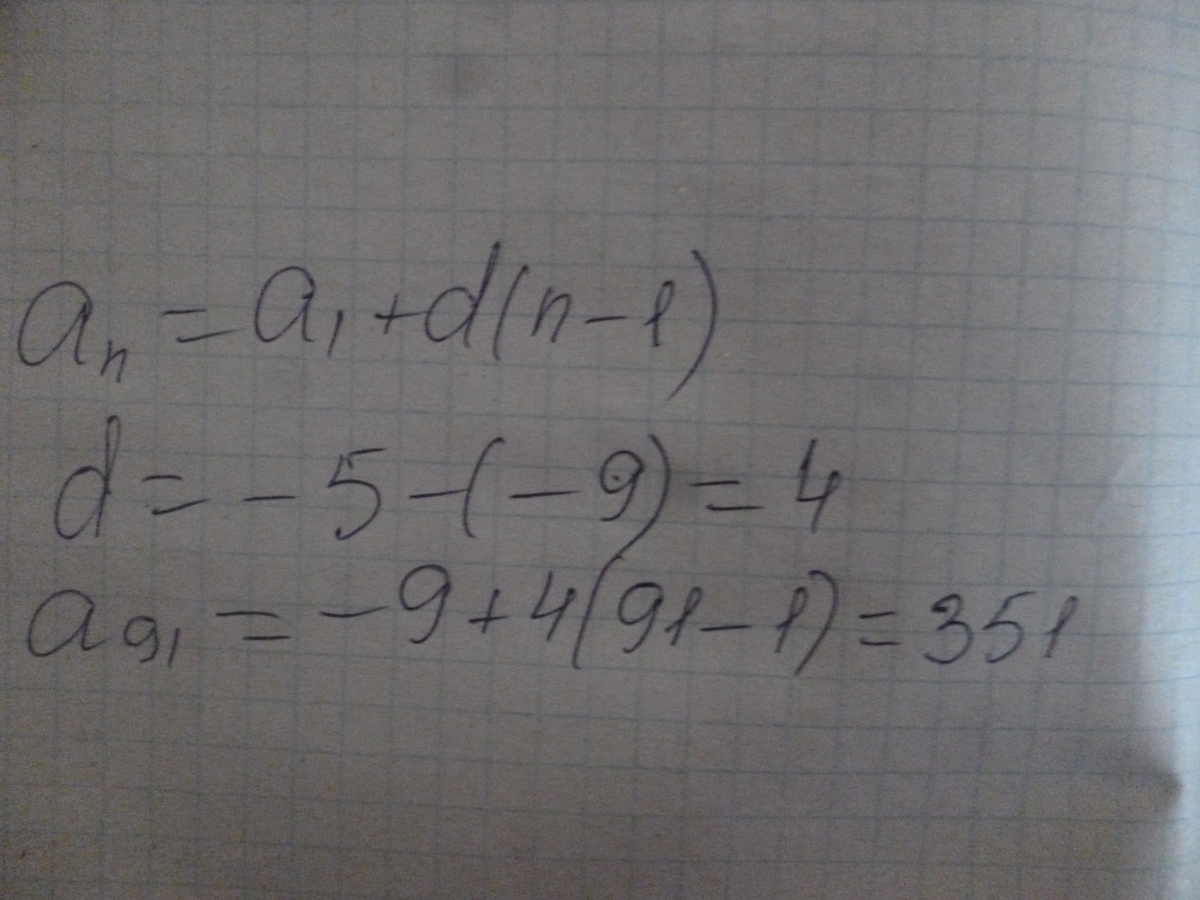 aₙ = a₁ + d(n - 1)
d = - 5 - (- 9) = 4
a₉₁ = - 9 + 4(91 - 1) = 351